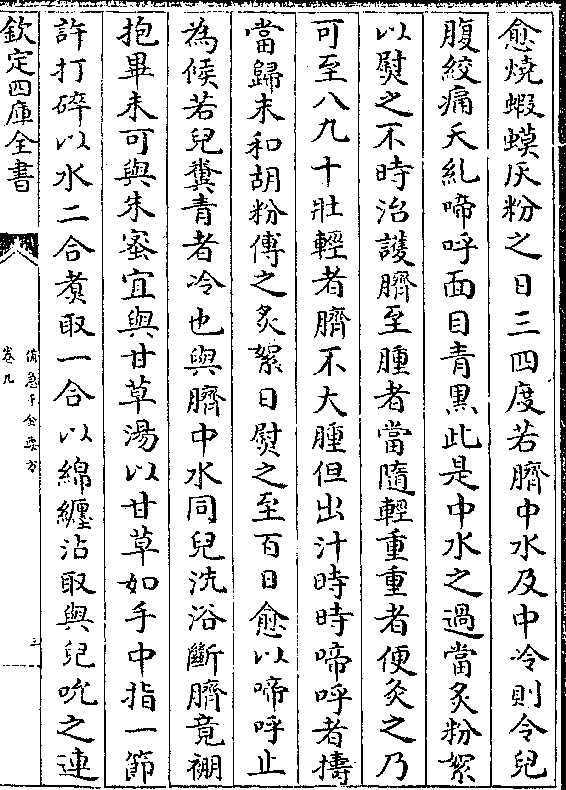 愈燒蝦蟆灰粉之日三四度若臍中水及中冷則令兒
腹絞痛夭糺啼呼面目青黒此是中水之過當炙粉絮
以熨之不時治護臍至腫者當隨輕重重者便灸之乃
可至八九十壯輕者臍不大腫但出汁時時啼呼者擣
當歸末和胡粉傅之炙絮日熨之至百日愈以啼呼止
為候若兒糞青者冷也與臍中水同兒洗浴斷臍竟硼
抱畢未可與朱蜜宜與甘草湯以甘草如手中指一節
許打碎以水二合煑取一合以綿纏沾取與兒吮之連
欽定四庫全書
備急千金要方
卷九
三